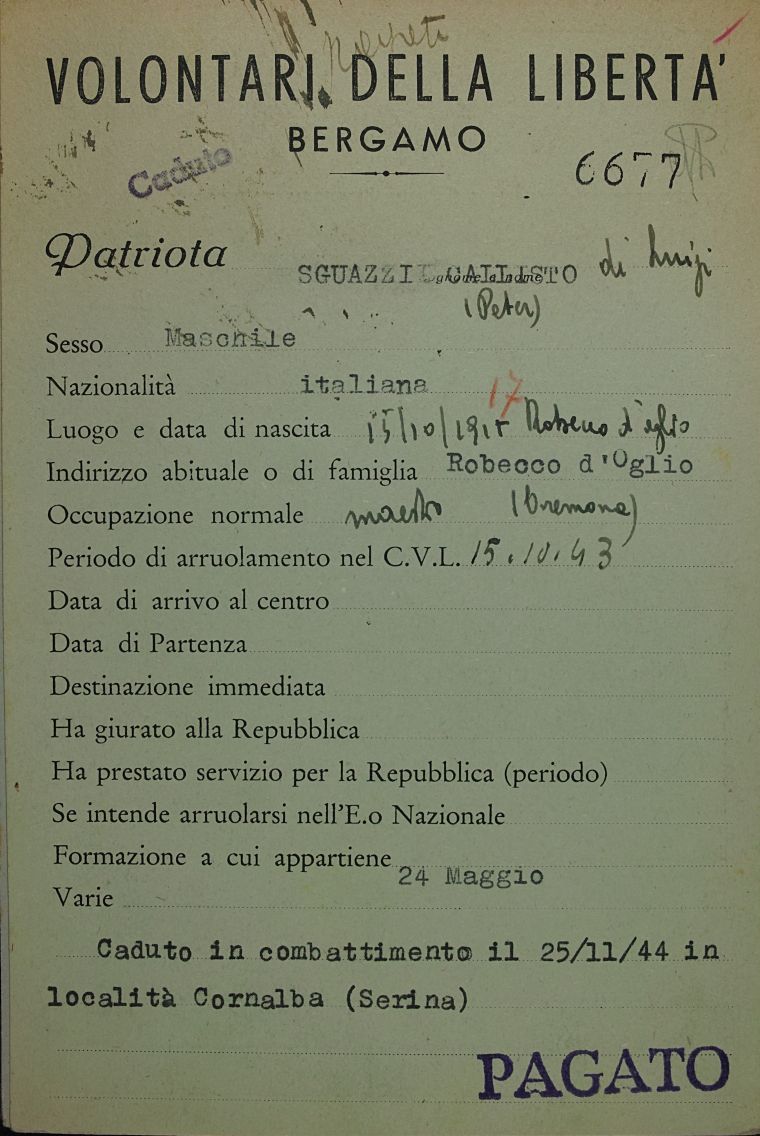 VOLONTARI DELLA LIBERTA'
BERGAMO
Caduto
6677
Patriota SGUAZZI CALLISTO di Luigi
(Peter)
Sesso Maschile
Nazionalità italiana
17
Luogo e data di nascita 15/10/191 Robecco d'oglio
Indirizzo abituale o di famiglia Robecco d'Oglio
Occupazione normale maestro (Cremona)
Periodo di arruolamento nel C.V.L. 15.10.43
Data di arrivo al centro
Data di Partenza
Destinazione immediata
Ha giurato alla Repubblica
Ha prestato servizio per la Repubblica (periodo)
Se intende arruolarsi nell'E.o Nazionale
Formazione a cui appartiene 24 Maggio
Varie
Caduto in combattimento il 25/11/44 in
località Cornalba (Serina)
PAGATO